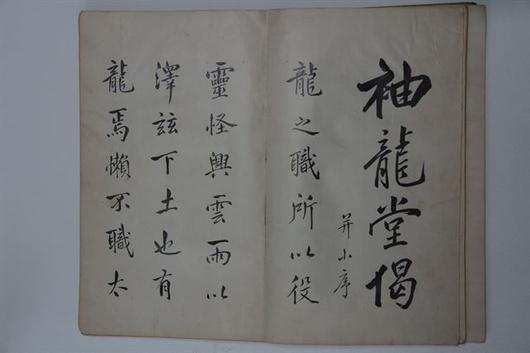 袖龍堂偈
并小序
龍之職所以役
靈怪興雲雨以
澤茲下土也有
龍焉懶不職太